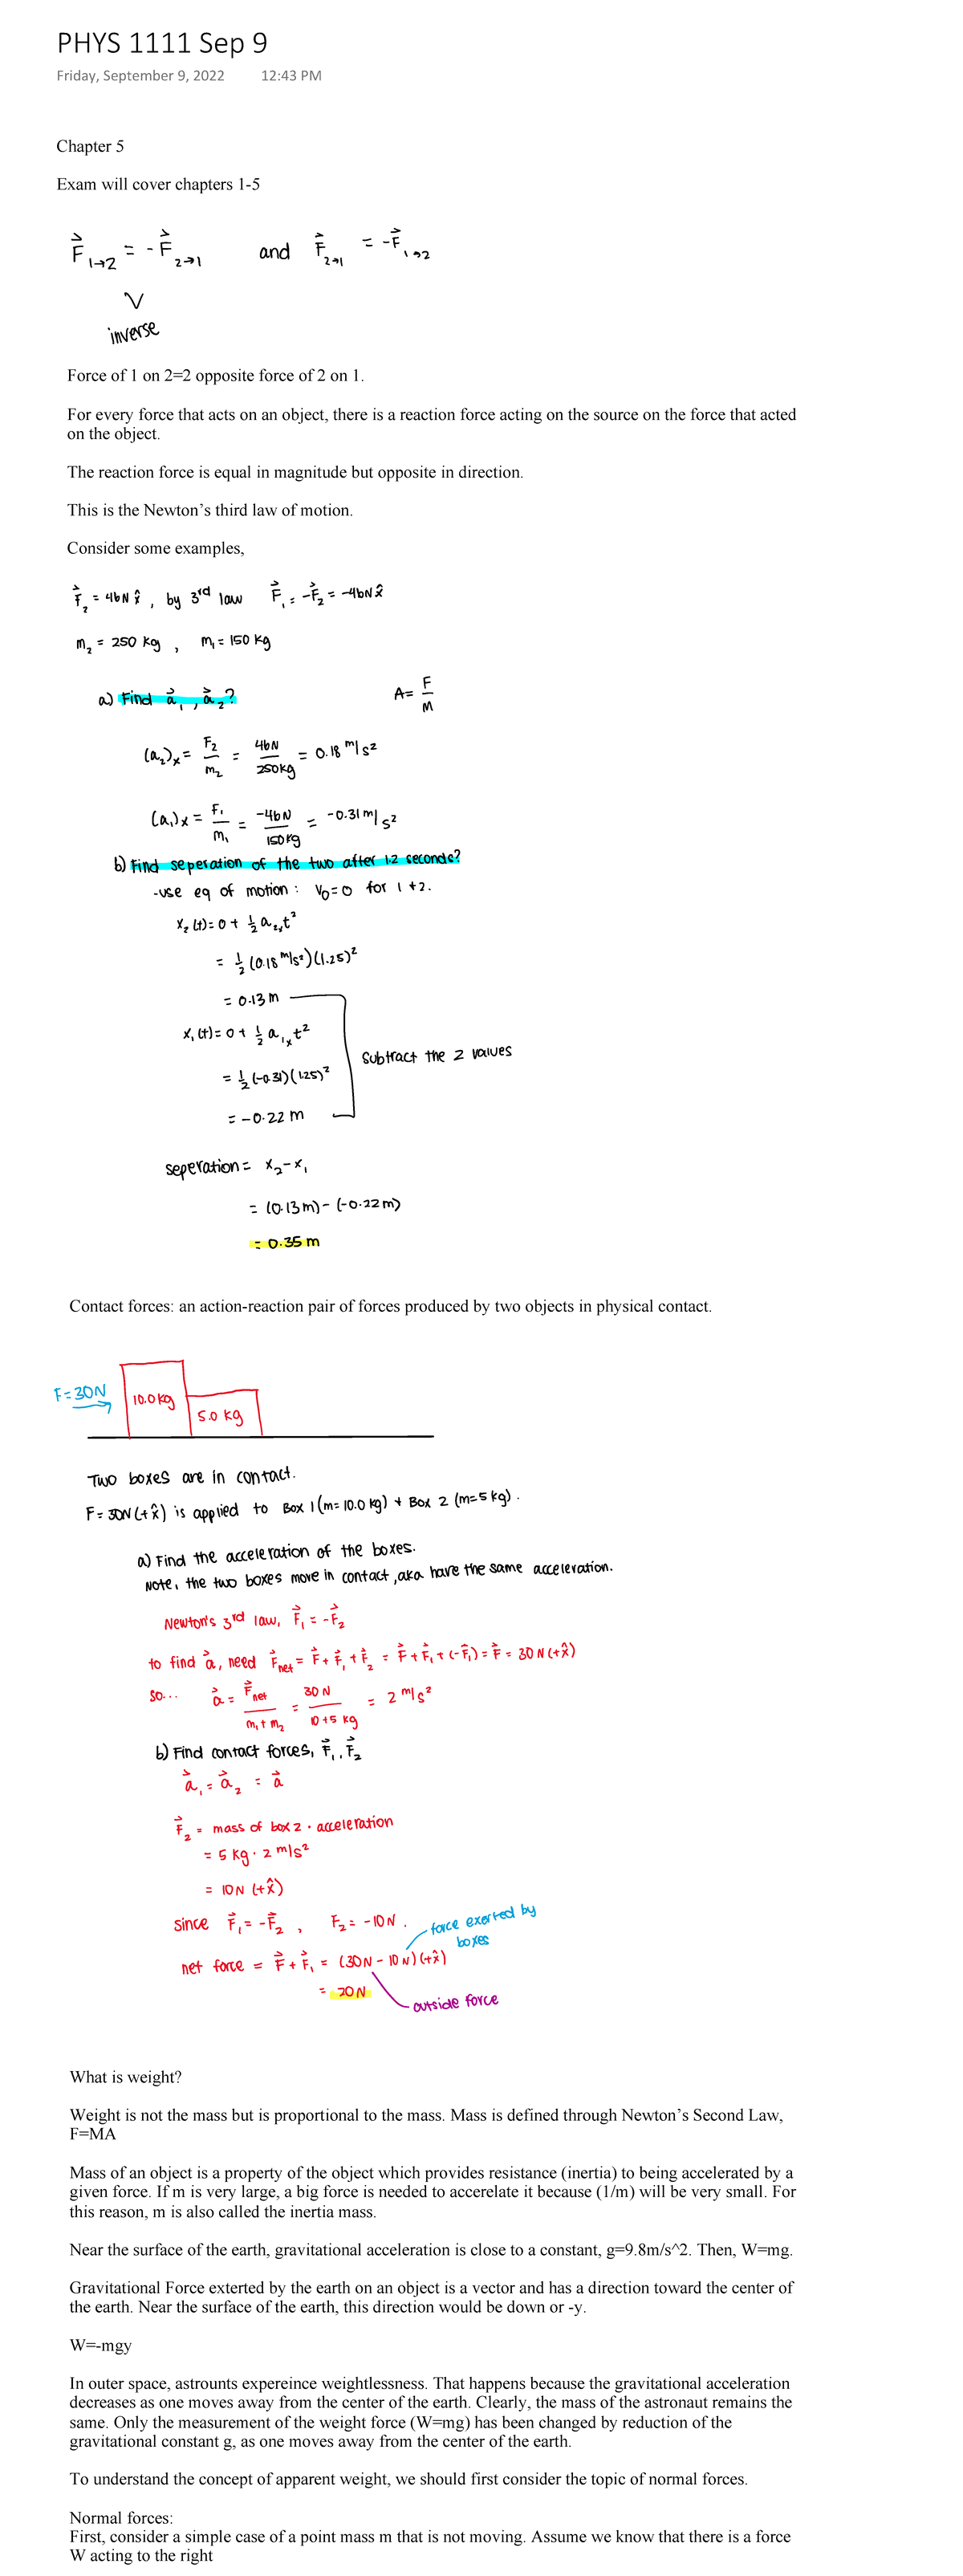 PHYS 1111 Sep 9
Friday, September 9, 2022 12:43 PM
Chapter 5
Exam will cover chapters 1-5
F⃗ 1→2 = -F⃗ 2→1 and F⃗ 2→1 = -F⃗ 1→2
V
inverse
Force of 1 on 2=2 opposite force of 2 on 1.
For every force that acts on an object, there is a reaction force acting on the source on the force that acted
on the object.
The reaction force is equal in magnitude but opposite in direction.
This is the Newton's third law of motion.
Consider some examples,
F⃗₂ = 46N x̂, by 3rd law F⃗₁ = -F⃗₂ = -46N x̂
m₂ = 250 kg, m₁ = 150 kg
a) Find a⃗₁, a⃗₂? A = F/M
(a₂)x = F₂/m₂ = 46N/250kg = 0.18 m/s²
(a₁)x = F₁/m₁ = -46N/150kg = -0.31 m/s²
b) Find seperation of the two after 1.2 seconds?
-use eq of motion: V₀=0 for 1+2.
x₂(t) = 0 + ½ a₂ₓt²
= ½ (0.18 m/s²)(1.25)²
= 0.13 m
x₁(t) = 0 + ½ a₁ₓt²
subtract the 2 values
= ½ (-0.31)(1.25)²
= -0.22 m
seperation = x₂-x₁
= (0.13m) - (-0.22m)
= 0.35 m
Contact forces: an action-reaction pair of forces produced by two objects in physical contact.
F=30N
10.0kg
5.0 kg
Two boxes are in contact.
F=30N(+x̂) is applied to Box 1 (m=10.0 kg) + Box 2 (m=5 kg).
a) Find the acceleration of the boxes.
Note, the two boxes move in contact, aka have the same acceleration.
Newton's 3rd law, F⃗₁ = -F⃗₂
to find a⃗, need F⃗net = F⃗ + F⃗₁ + F⃗₂ = F⃗ + F⃗₁ + (-F⃗₁) = F⃗ = 30 N (+x̂)
so... a⃗ = F⃗net/m₁+m₂ = 30 N/10+5 kg = 2 m/s²
b) Find contact forces, F⃗₁, F⃗₂
a⃗₁ = a⃗₂ = a⃗
F⃗₂ = mass of box 2 · acceleration
= 5 kg · 2 m/s²
= 10N (+x̂)
since F⃗₁ = -F⃗₂, F₂ = -10N.
force exerted by
boxes
net force = F⃗ + F⃗₁ = (30N - 10N)(+x̂)
= 20N
outside force
What is weight?
Weight is not the mass but is proportional to the mass. Mass is defined through Newton's Second Law,
F=MA
Mass of an object is a property of the object which provides resistance (inertia) to being accelerated by a
given force. If m is very large, a big force is needed to accerelate it because (1/m) will be very small. For
this reason, m is also called the inertia mass.
Near the surface of the earth, gravitational acceleration is close to a constant, g=9.8m/s^2. Then, W=mg.
Gravitational Force exterted by the earth on an object is a vector and has a direction toward the center of
the earth. Near the surface of the earth, this direction would be down or -y.
W=-mgy
In outer space, astrounts expereince weightlessness. That happens because the gravitational acceleration
decreases as one moves away from the center of the earth. Clearly, the mass of the astronaut remains the
same. Only the measurement of the weight force (W=mg) has been changed by reduction of the
gravitational constant g, as one moves away from the center of the earth.
To understand the concept of apparent weight, we should first consider the topic of normal forces.
Normal forces:
First, consider a simple case of a point mass m that is not moving. Assume we know that there is a force
W acting to the right